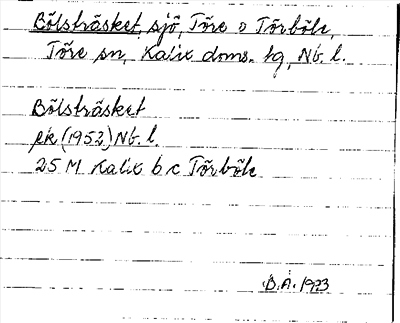 Bölsträsket, sjö, Töre o Törböle,
Töre sn, Kalix doms. tg, Nb. l.
Bölsträsket
ek (1952) Nb. l.
25 M Kalix b c Törböle
B.A. 1973